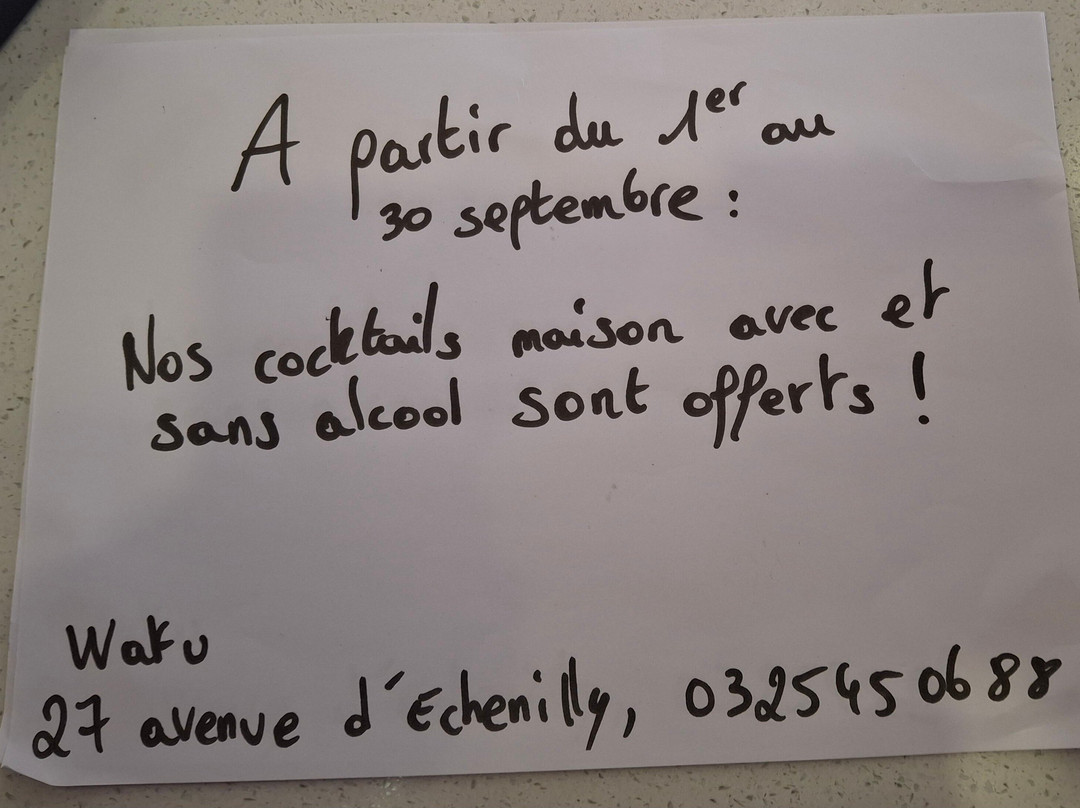 A partir du 1er au
30 septembre :
Nos cocktails maison avec et
sans alcool sont offerts !
Waku
27 avenue d'Echenilly, 0325450688